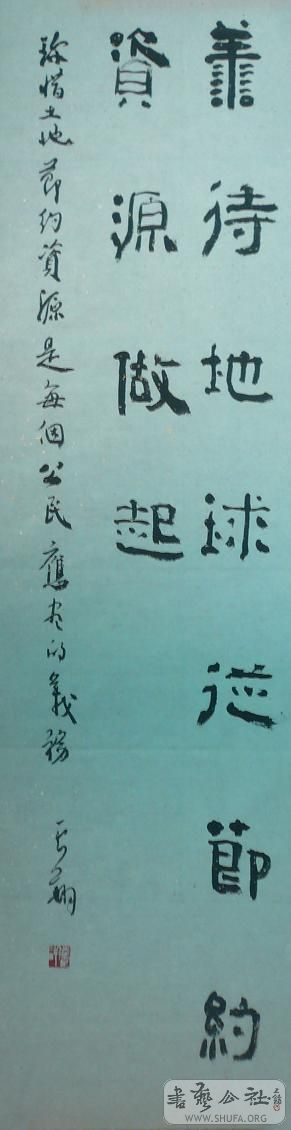 善待地球從節約
資源做起
珍惜土地節約資源是每個公民應盡的義務
書藝公社
WWW.SHUFA.ORG